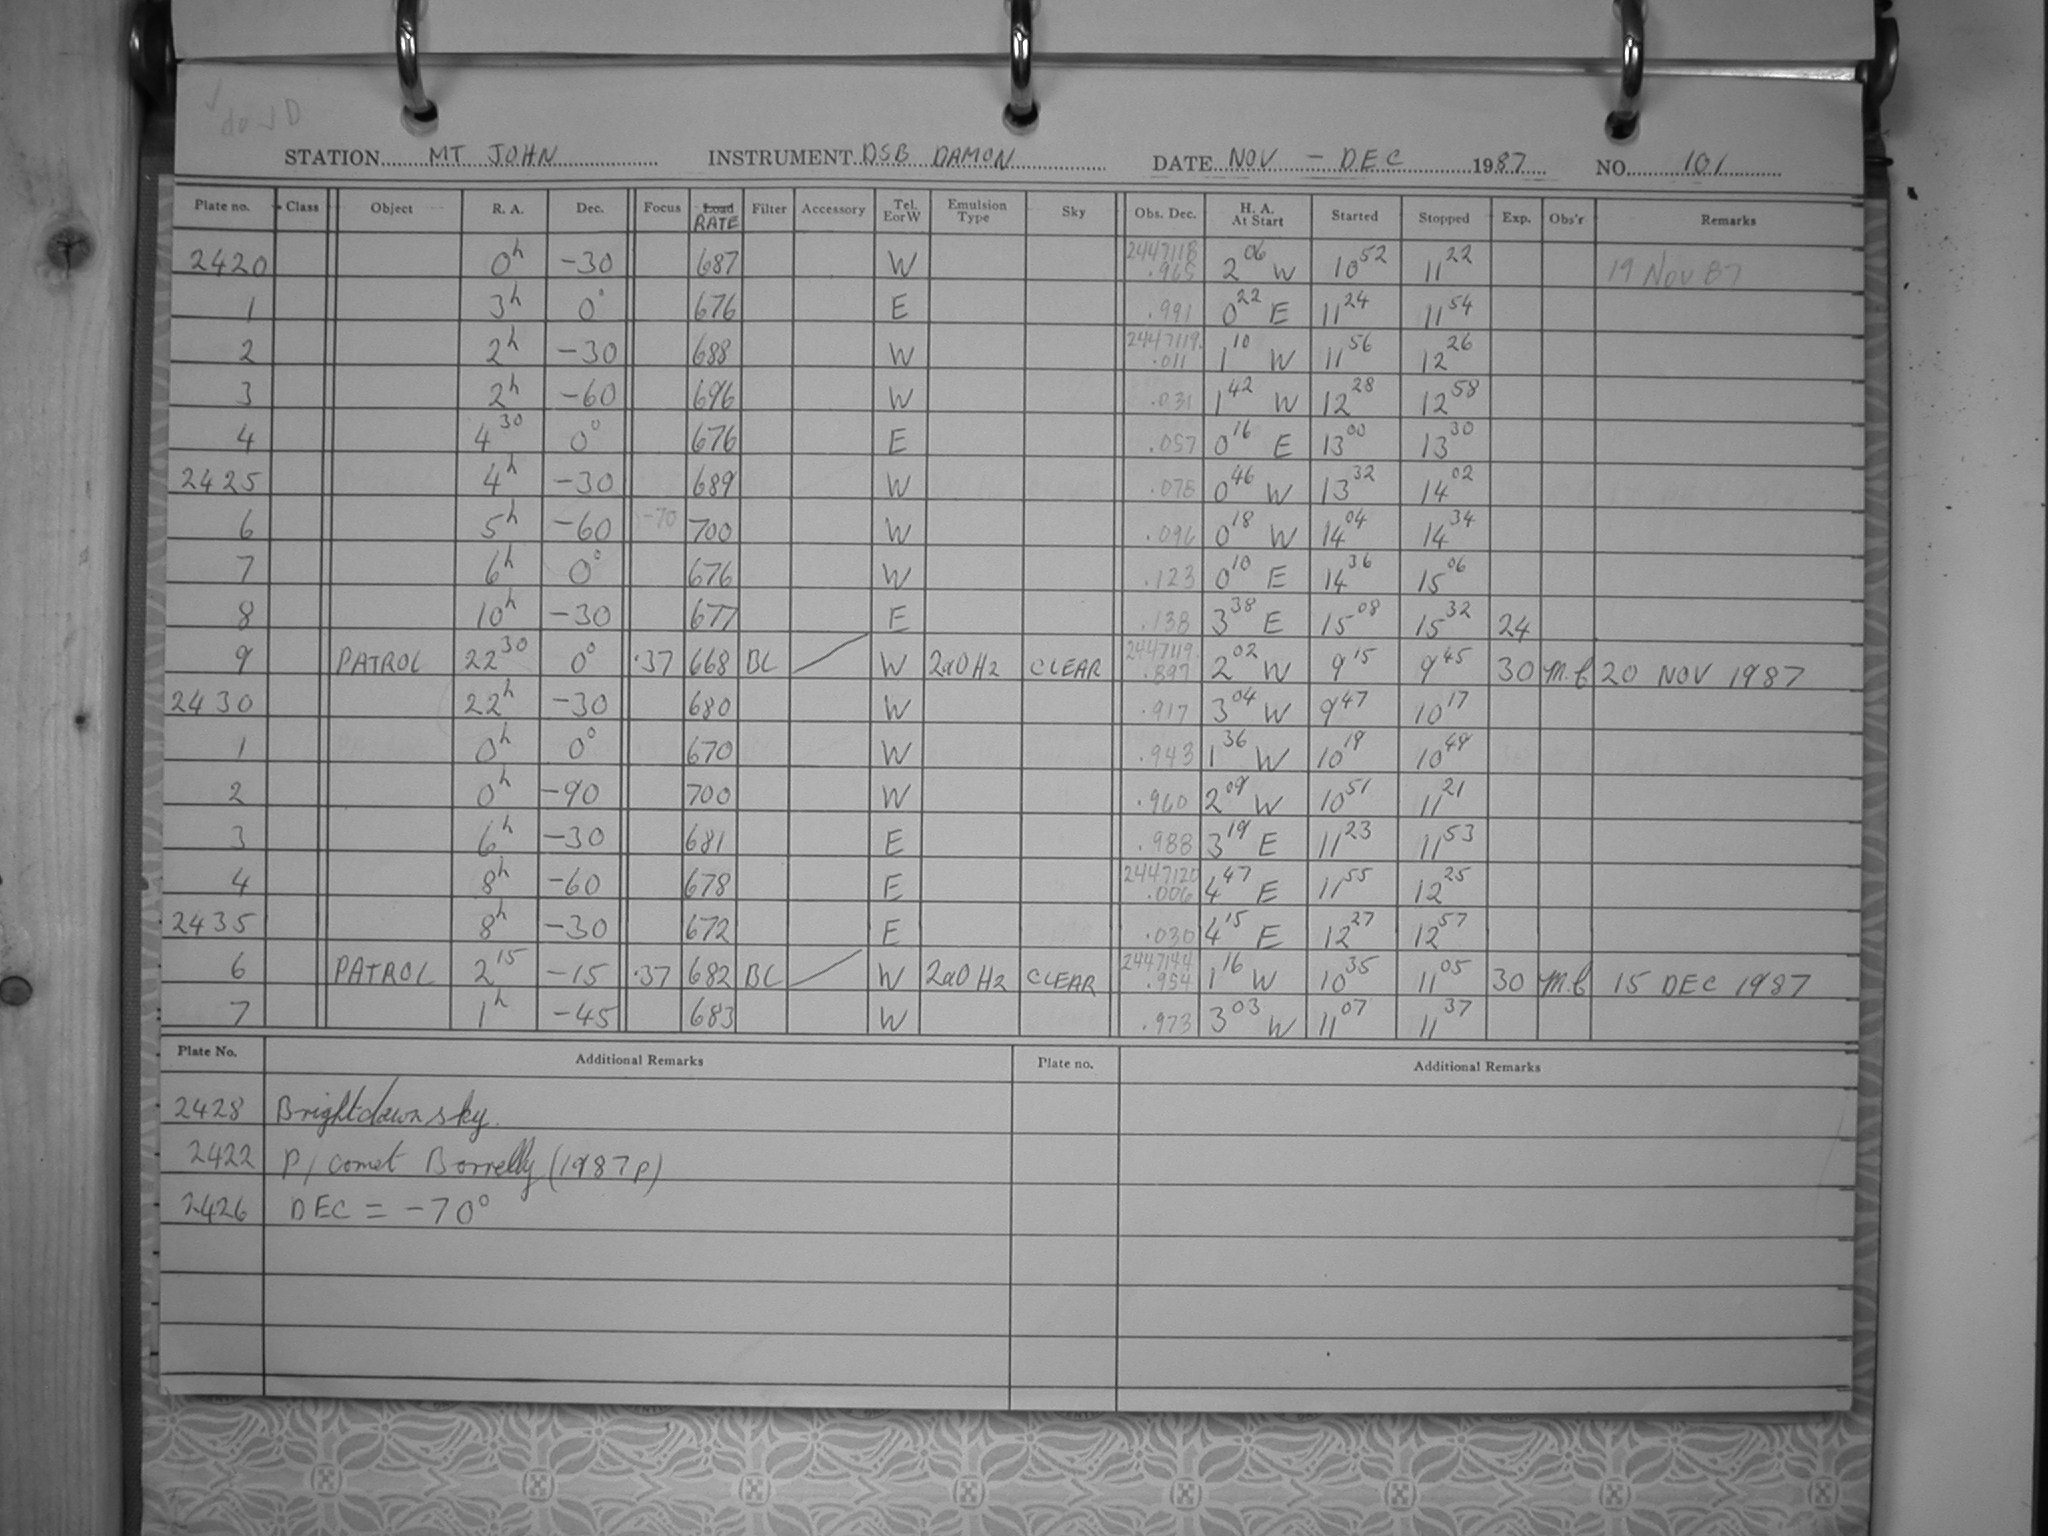 do J D
STATION MT JOHN INSTRUMENT DSB DAMON DATE NOV - DEC 1987 NO. 101
Plate no. Class Object R. A. Dec. Focus Load RATE Filter Accessory Tel. E or W Emulsion Type Sky Obs. Dec. H. A. At Start Started Stopped Exp. Obs'r Remarks
2420 0h -30 687 W 2447118 .965 2 06 W 10 52 11 22 19 Nov 87
1 3h 0° 676 E .991 0 22 E 11 24 11 54
2 2h -30 688 W 2447119. .011 1 10 W 11 56 12 26
3 2h -60 696 W .031 1 42 W 12 28 12 58
4 4 30 0° 676 E .057 0 16 E 13 00 13 30
2425 4h -30 689 W .075 0 46 W 13 32 14 02
6 5h -60 -70 700 W .096 0 18 W 14 04 14 34
7 6h 0° 676 W .123 0 10 E 14 36 15 06
8 10h -30 677 E .138 3 38 E 15 08 15 32 24
9 PATROL 22 30 0° .37 668 BL W 2aO H2 CLEAR 2447119. .897 2 02 W 9 15 9 45 30 M.C 20 NOV 1987
2430 22h -30 680 W .917 3 04 W 9 47 10 17
1 0h 0° 670 W .943 1 36 W 10 19 10 49
2 0h -90 700 W .960 2 09 W 10 51 11 21
3 6h -30 681 E .988 3 19 E 11 23 11 53
4 8h -60 678 E 2447120 .006 4 47 E 11 55 12 25
2435 8h -30 672 E .030 4 15 E 12 27 12 57
6 PATROL 2 15 -15 .37 682 BL W 2aO H2 CLEAR 2447144 .954 1 16 W 10 35 11 05 30 M.C 15 DEC 1987
7 1h -45 683 W .973 3 03 W 11 07 11 37
Plate No. Additional Remarks Plate no. Additional Remarks
2428 Bright dawn sky.
2422 P/comet Borrelly (1987p)
2426 DEC = -70°